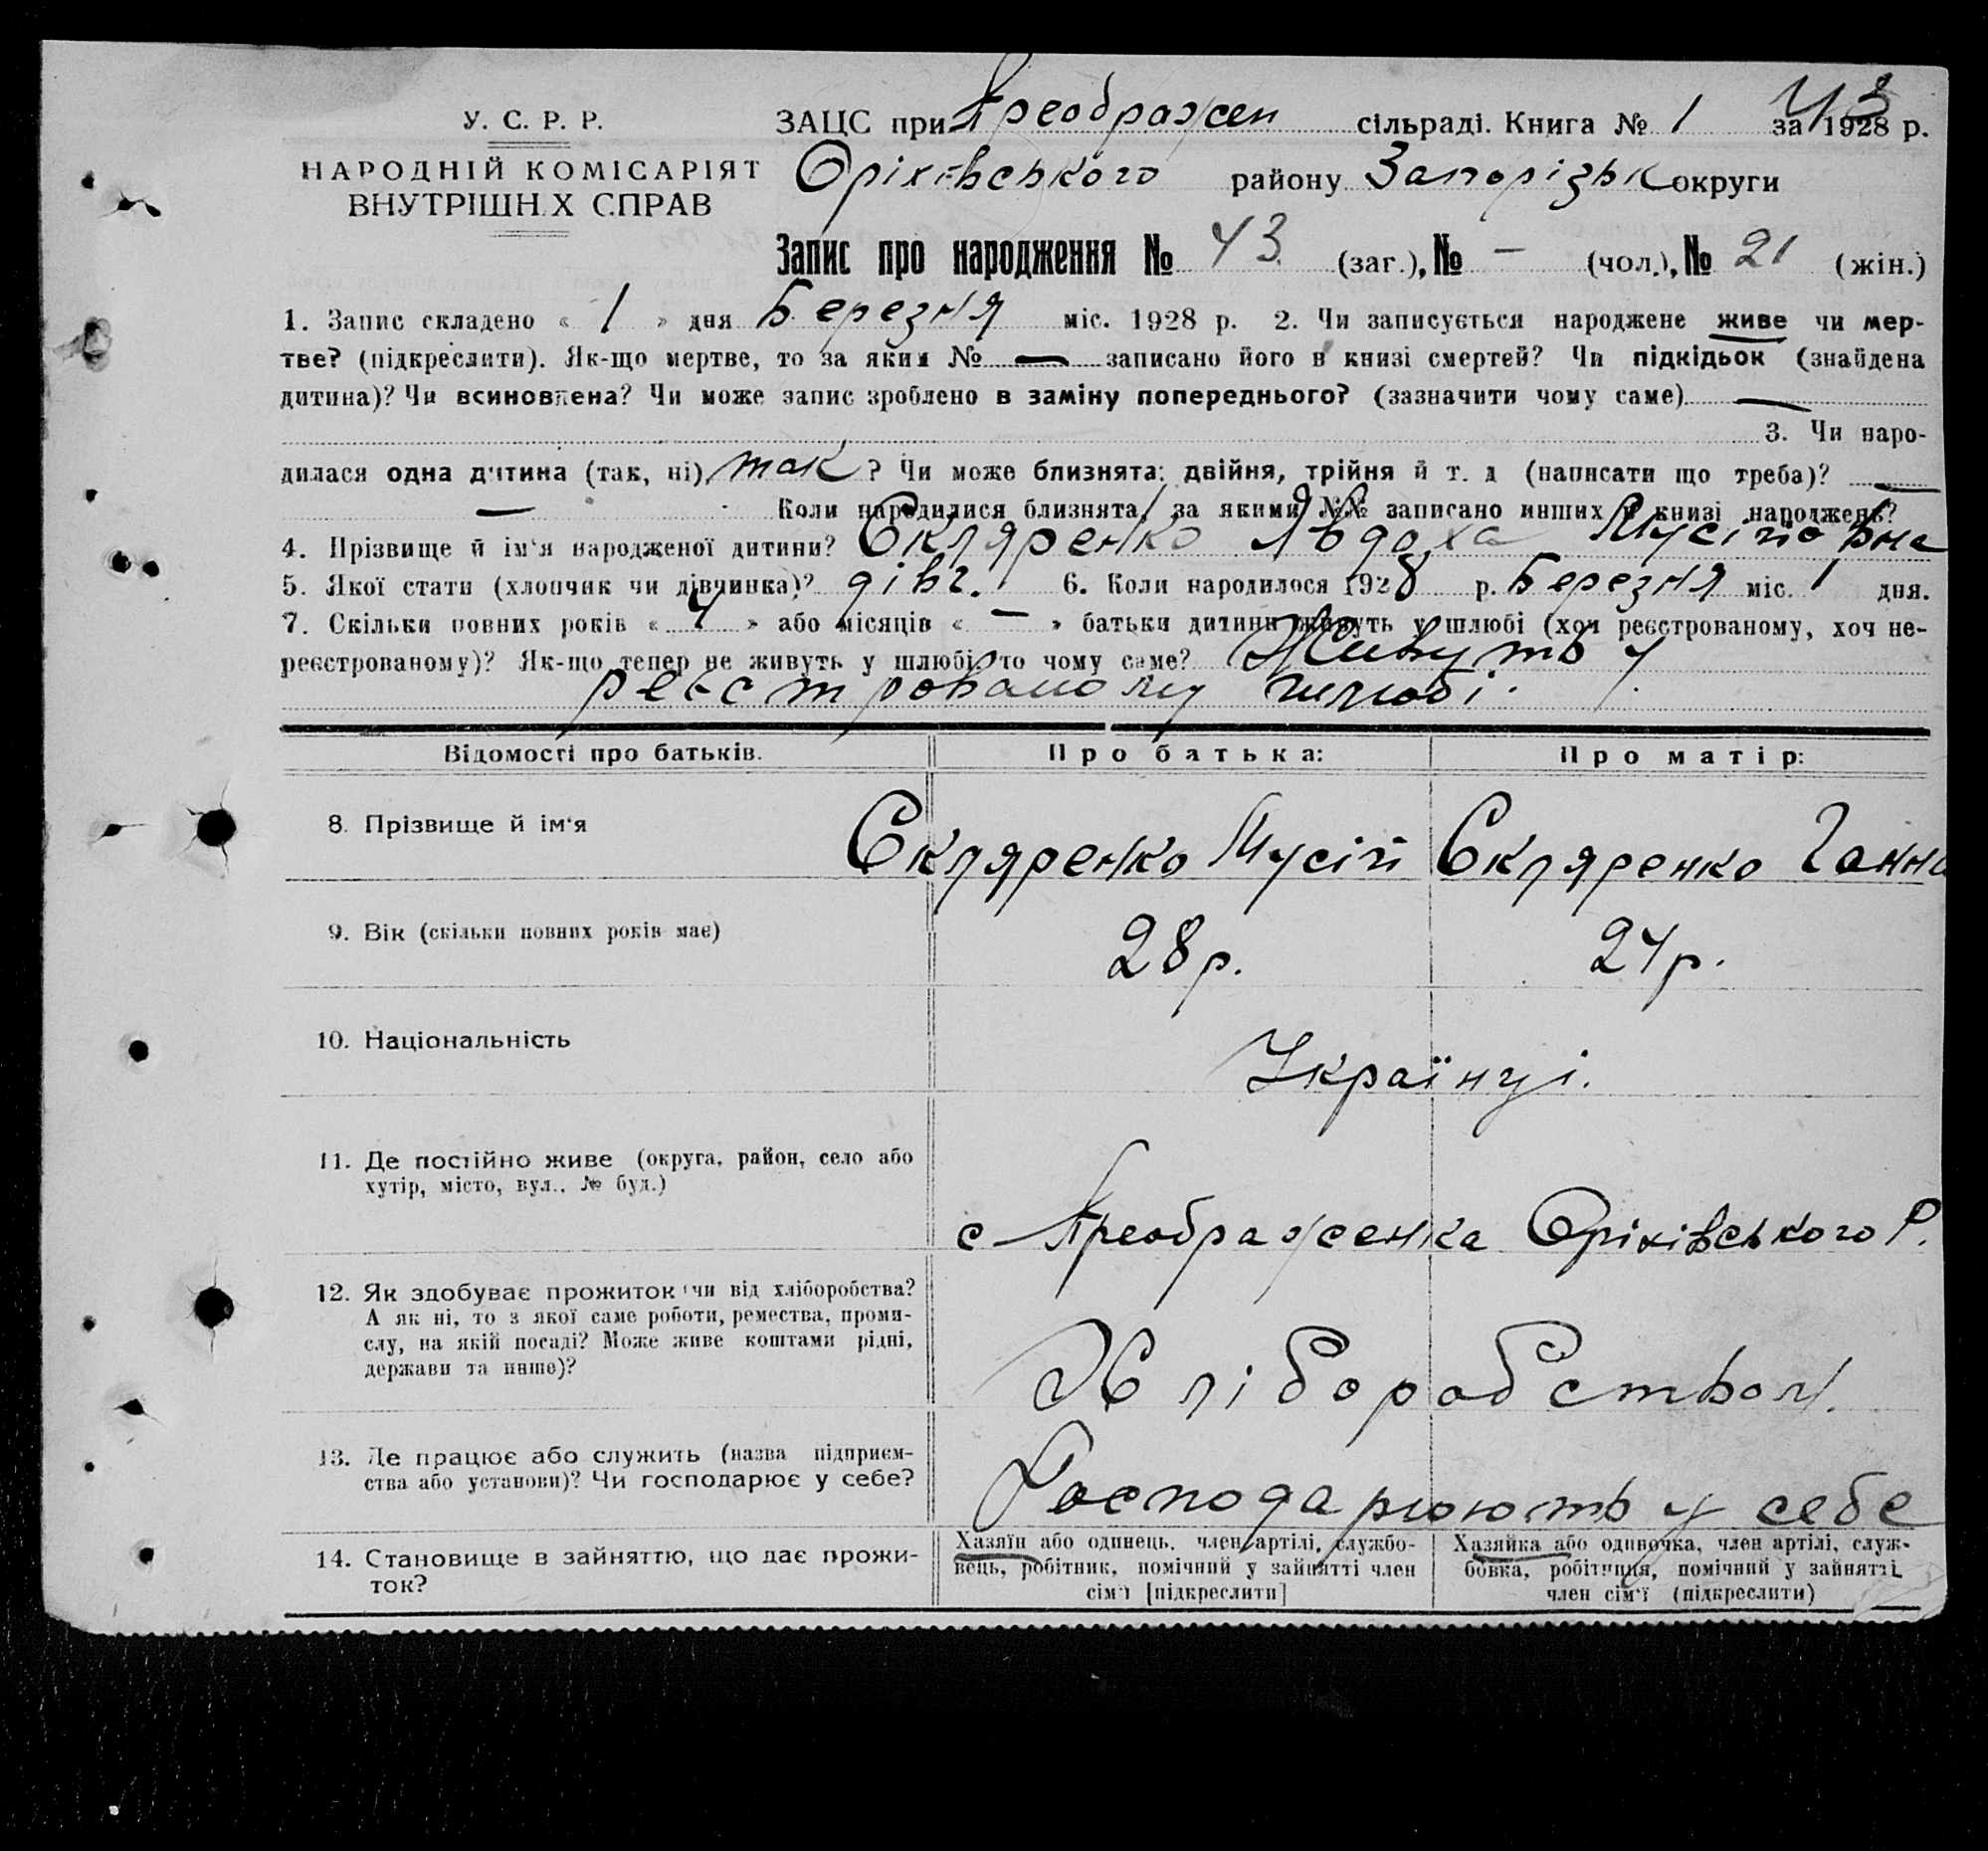 43
У. С. Р. Р.
НАРОДНІЙ КОМІСАРІЯТ
ВНУТРІШН.Х СПРАВ
ЗАЦС при Преображен сільраді. Книга № 1 за 1928 р.
Оріхівського району Запорізьк округи
Запис про народження № 43 (заг.), № — (чол.), № 21 (жін.)
1. Запис складено « 1 » дня Березня міс. 1928 р. 2. Чи записується народжене живе чи мер-
тве? (підкреслити). Як-що мертве, то за яким № — записано його в книзі смертей? Чи підкідьок (знайдена
дитина)? Чи всиновлена? Чи може запис зроблено в заміну попереднього? (зазначити чому саме) —
3. Чи наро-
дилася одна дитина (так, ні) так ? Чи може близнята: двійня, трійня й т. д (написати що треба)? —
— Коли народилися близнята, за якими №№ записано инших в книзі народжень?
4. Прізвище й ім'я народженої дитини? Скляренко Явдоха Мусіївна
5. Якої стати (хлопчик чи дівчинка)? дівч. 6. Коли народилося 1928 р. Березня міс. 1 дня.
7. Скільки повних років « 4 » або місяців « — » батьки дитини живуть у шлюбі (хоч реєстрованому, хоч не-
реєстрованому)? Як-що тепер не живуть у шлюбі, то чому саме? Живуть у
реєстрованому шлюбі.
Відомості про батьків. Про батька: Про матір:
8. Прізвище й ім'я Скляренко Мусій Скляренко Ганна
9. Вік (скільки повних років має) 28 р. 24 р.
10. Національність Українці.
11. Де постійно живе (округа, район, село або
хутір, місто, вул., № буд.)
с Преображенка Оріхівського Р.
12. Як здобуває прожиток чи від хліборобства?
А як ні, то з якої саме роботи, ремества, проми-
слу, на якій посаді? Може живе коштами рідні,
держави та инше)?
Хліборобством.
13. Де працює або служить (назва підприєм-
ства або установи)? Чи господарює у себе?
Господарюють у себе
14. Становище в зайняттю, що дає прожи-
ток?
Хазяїн або одинець, член артілі, службо-
вець, робітник, помічний у зайнятті член
сім'ї [підкреслити]
Хазяйка або одиночка, член артілі, служ-
бовка, робітниця, помічний у зайнятті
член сім'ї (підкреслити)